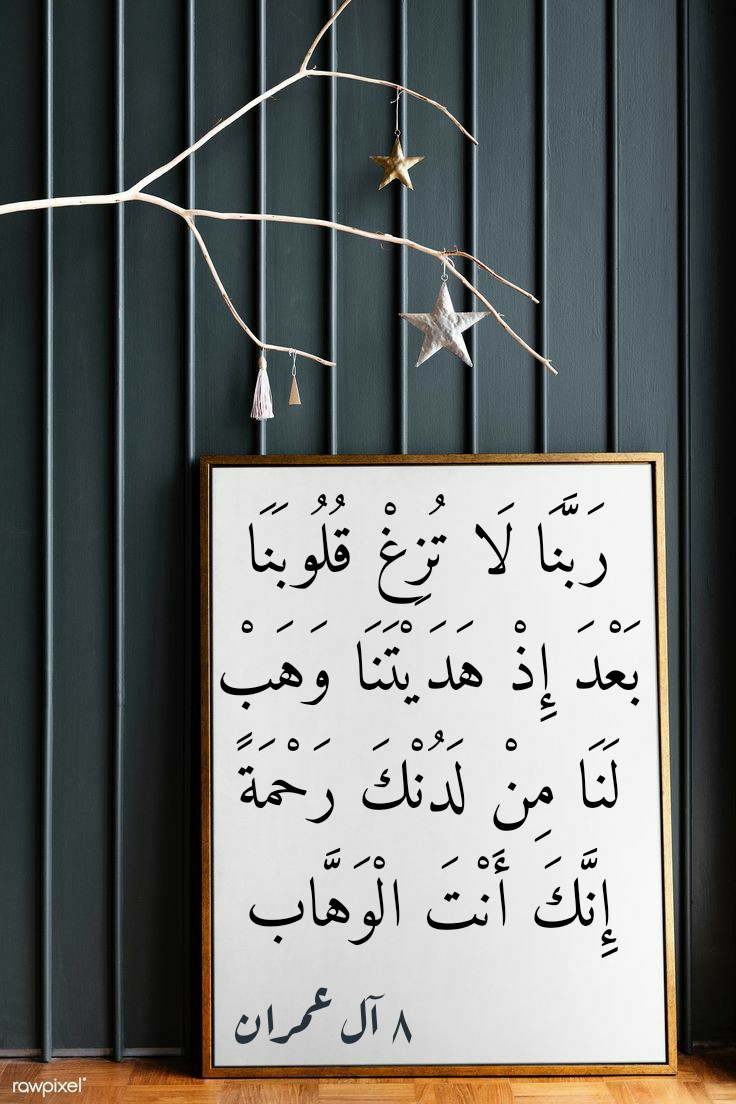 رَبَّنَا لَا تُزِغْ قُلُوبَنَا
بَعْدَ إِذْ هَدَيْتَنَا وَهَبْ
لَنَا مِنْ لَدُنْكَ رَحْمَةً
إِنَّكَ أَنْتَ الْوَهَّاب
٨ آل عمران
rawpixel®